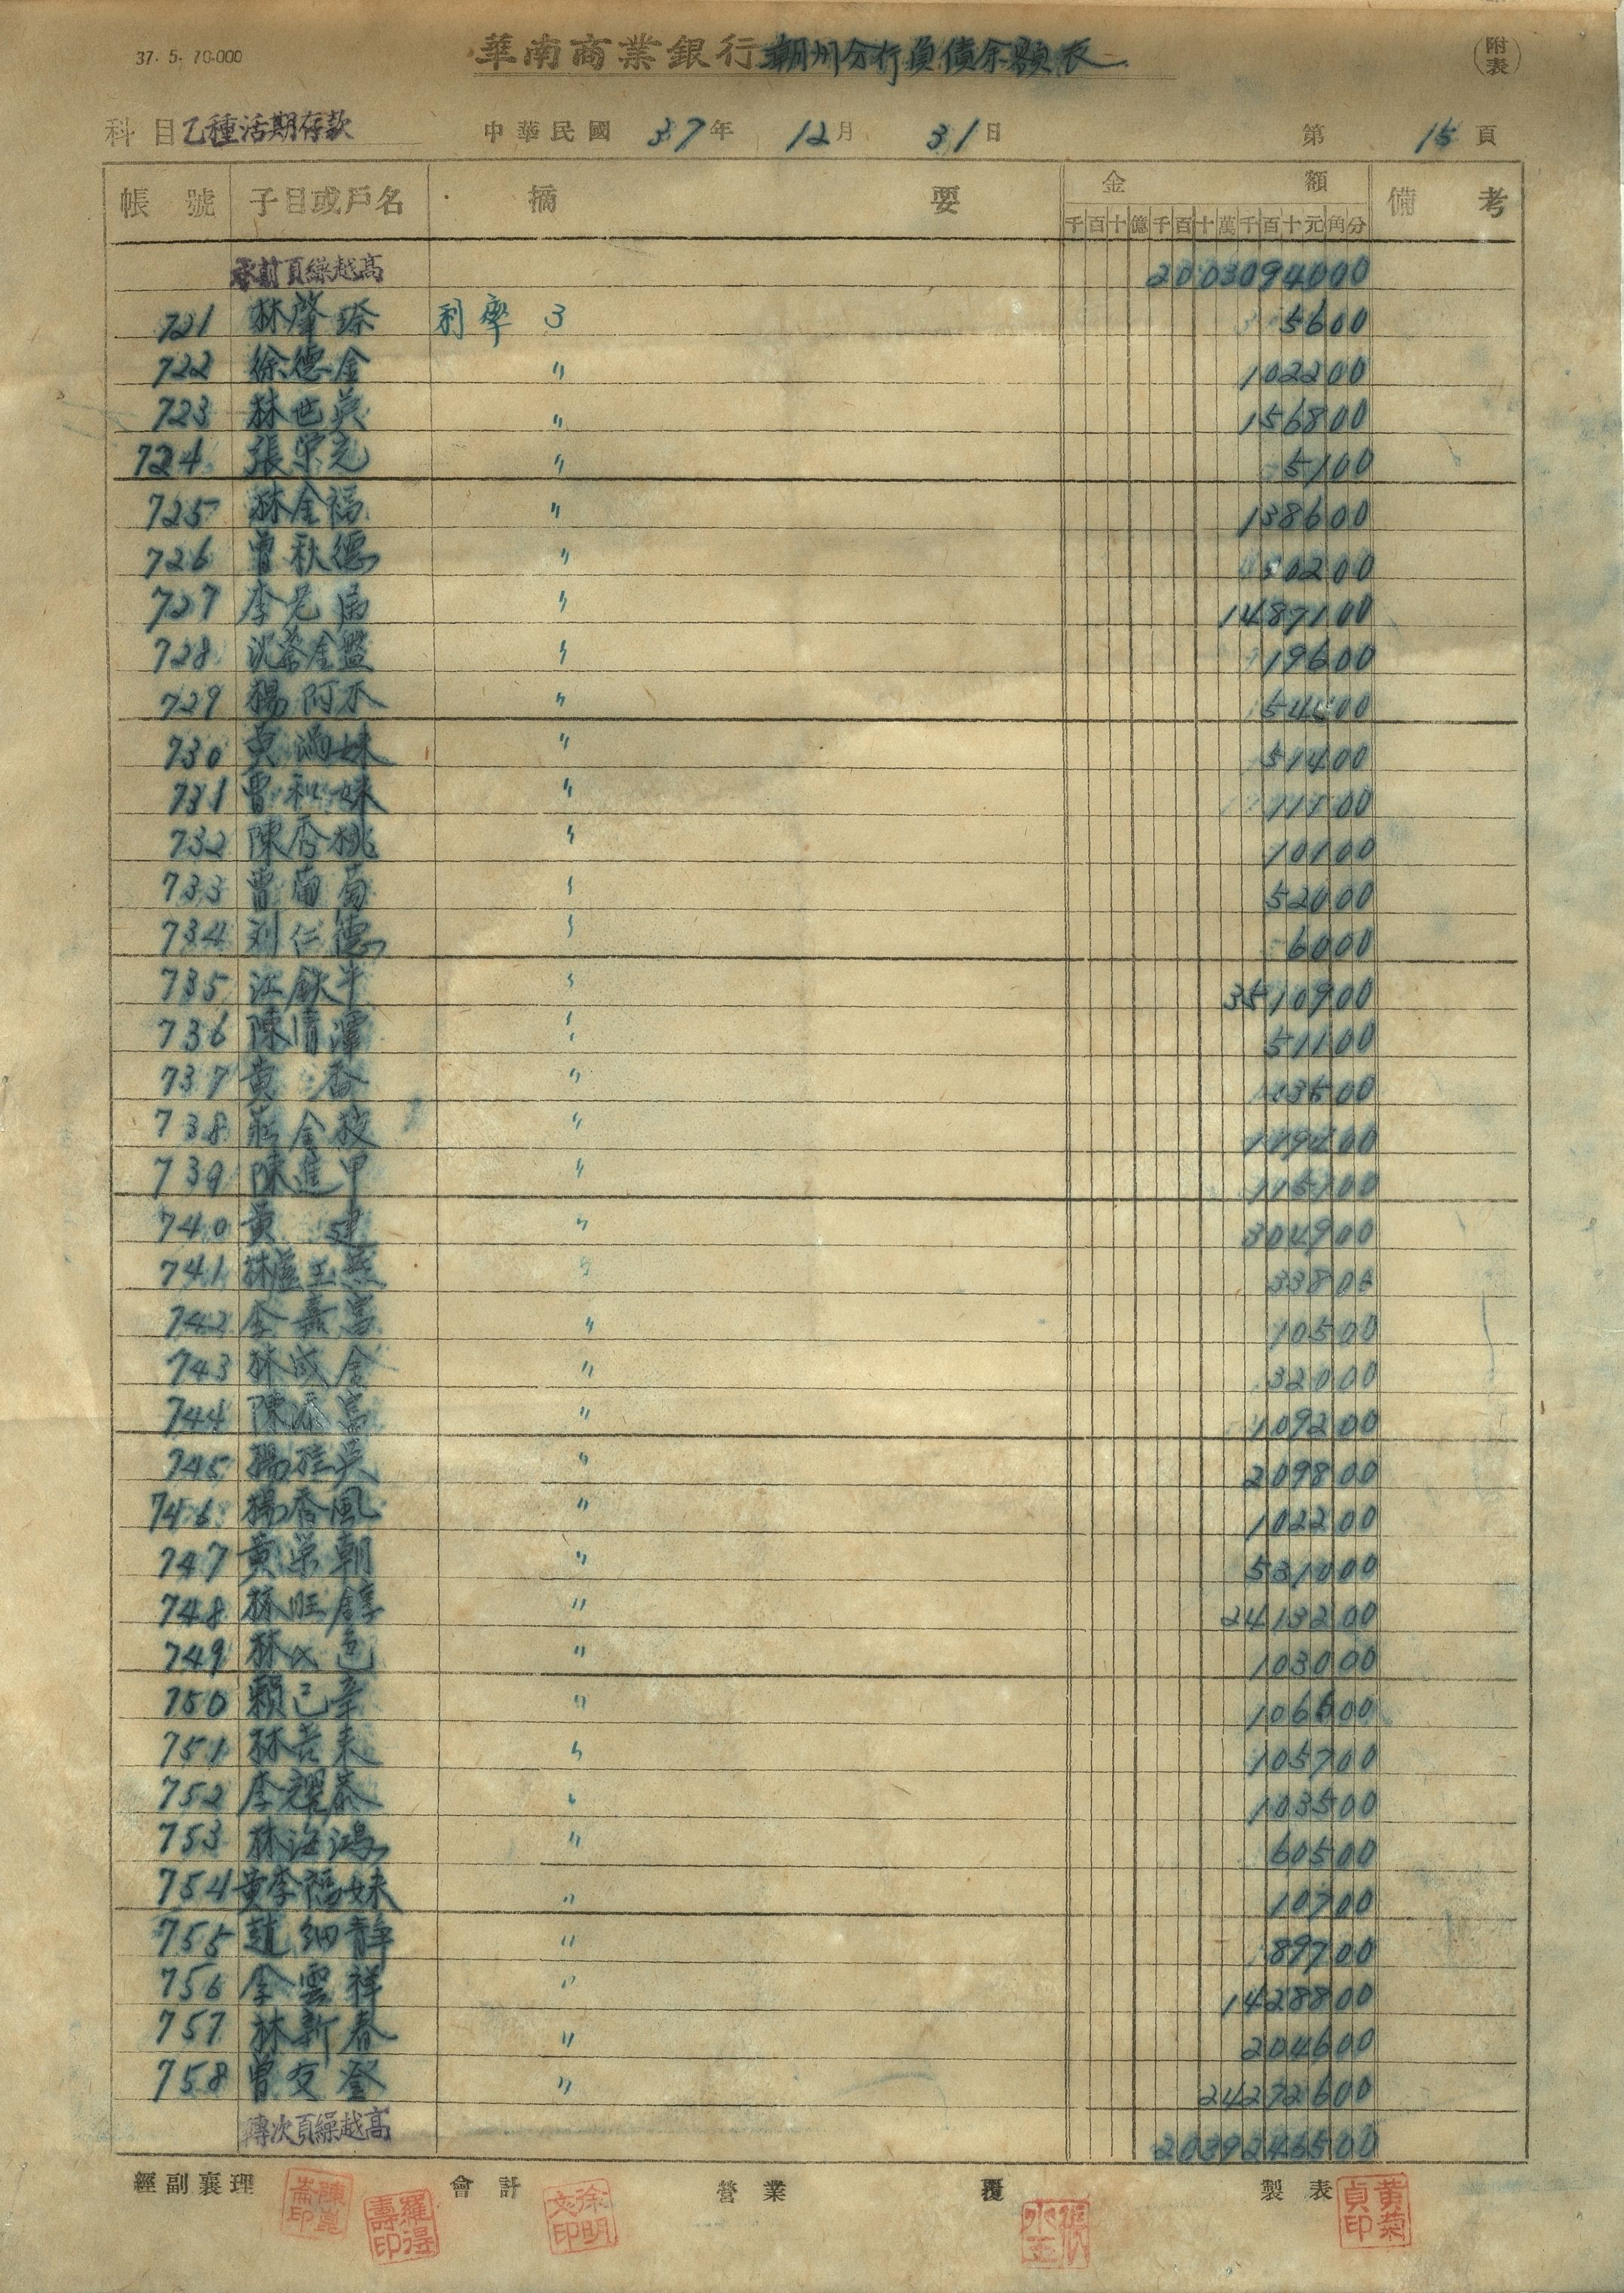 37. 5. 70.000
華南商業銀行潮州分行負債余額表
(附表)
科目 乙種活期存款 中華民國 37年 12月 31日 第 15 頁
帳號 子目或戶名 摘要 金額 備考
千百十億千百十萬千百十元角分
承前頁繰越高 2003094000
721 林肇琛 利率 3 5600
722 徐德金 〃 102200
723 林世英 〃 156800
724 張栄元 〃 5100
725 林金福 〃 138600
726 曾秋德 〃
727 李 〃 1487100
728 金盤 〃 19600
729 楊阿不 〃
730 黃滿妹 〃 51400
731 曾和妹 〃
732 陳秀桃 〃 10100
733 曾葡萄 〃 52000
734 刘仁德 〃 6000
735 江鉄牛 〃 3510900
736 陳清潭 〃 51100
737 黃香 〃
738 莊金枝 〃 119400
739 陳進甲 〃 115700
740 黃建 〃 304900
741 林盧玉燕 〃 33800
742 李嘉富 〃 10500
743 林成金 〃 32000
744 陳添富 〃 109200
745 楊桂英 〃 209800
746 楊香風 〃 102200
747 黃栄朝 〃 531000
748 林旺錞 〃 2413200
749 林 〃 103000
750 賴己辛 〃 106600
751 林苦来 〃 105700
752 李耀泰 〃 103500
753 林海鴻 〃 60500
754 黃李福妹 〃 10700
755 趙細静 〃 89700
756 李雲祥 〃 1428800
757 林新春 〃 204600
758 曾友登 〃 24272600
轉次頁繰越高 2039246500
經副襄理 會計 營業 覆 製表
陳崑崙印 羅得壽印 徐明文印 張水玉 黃菊貞印